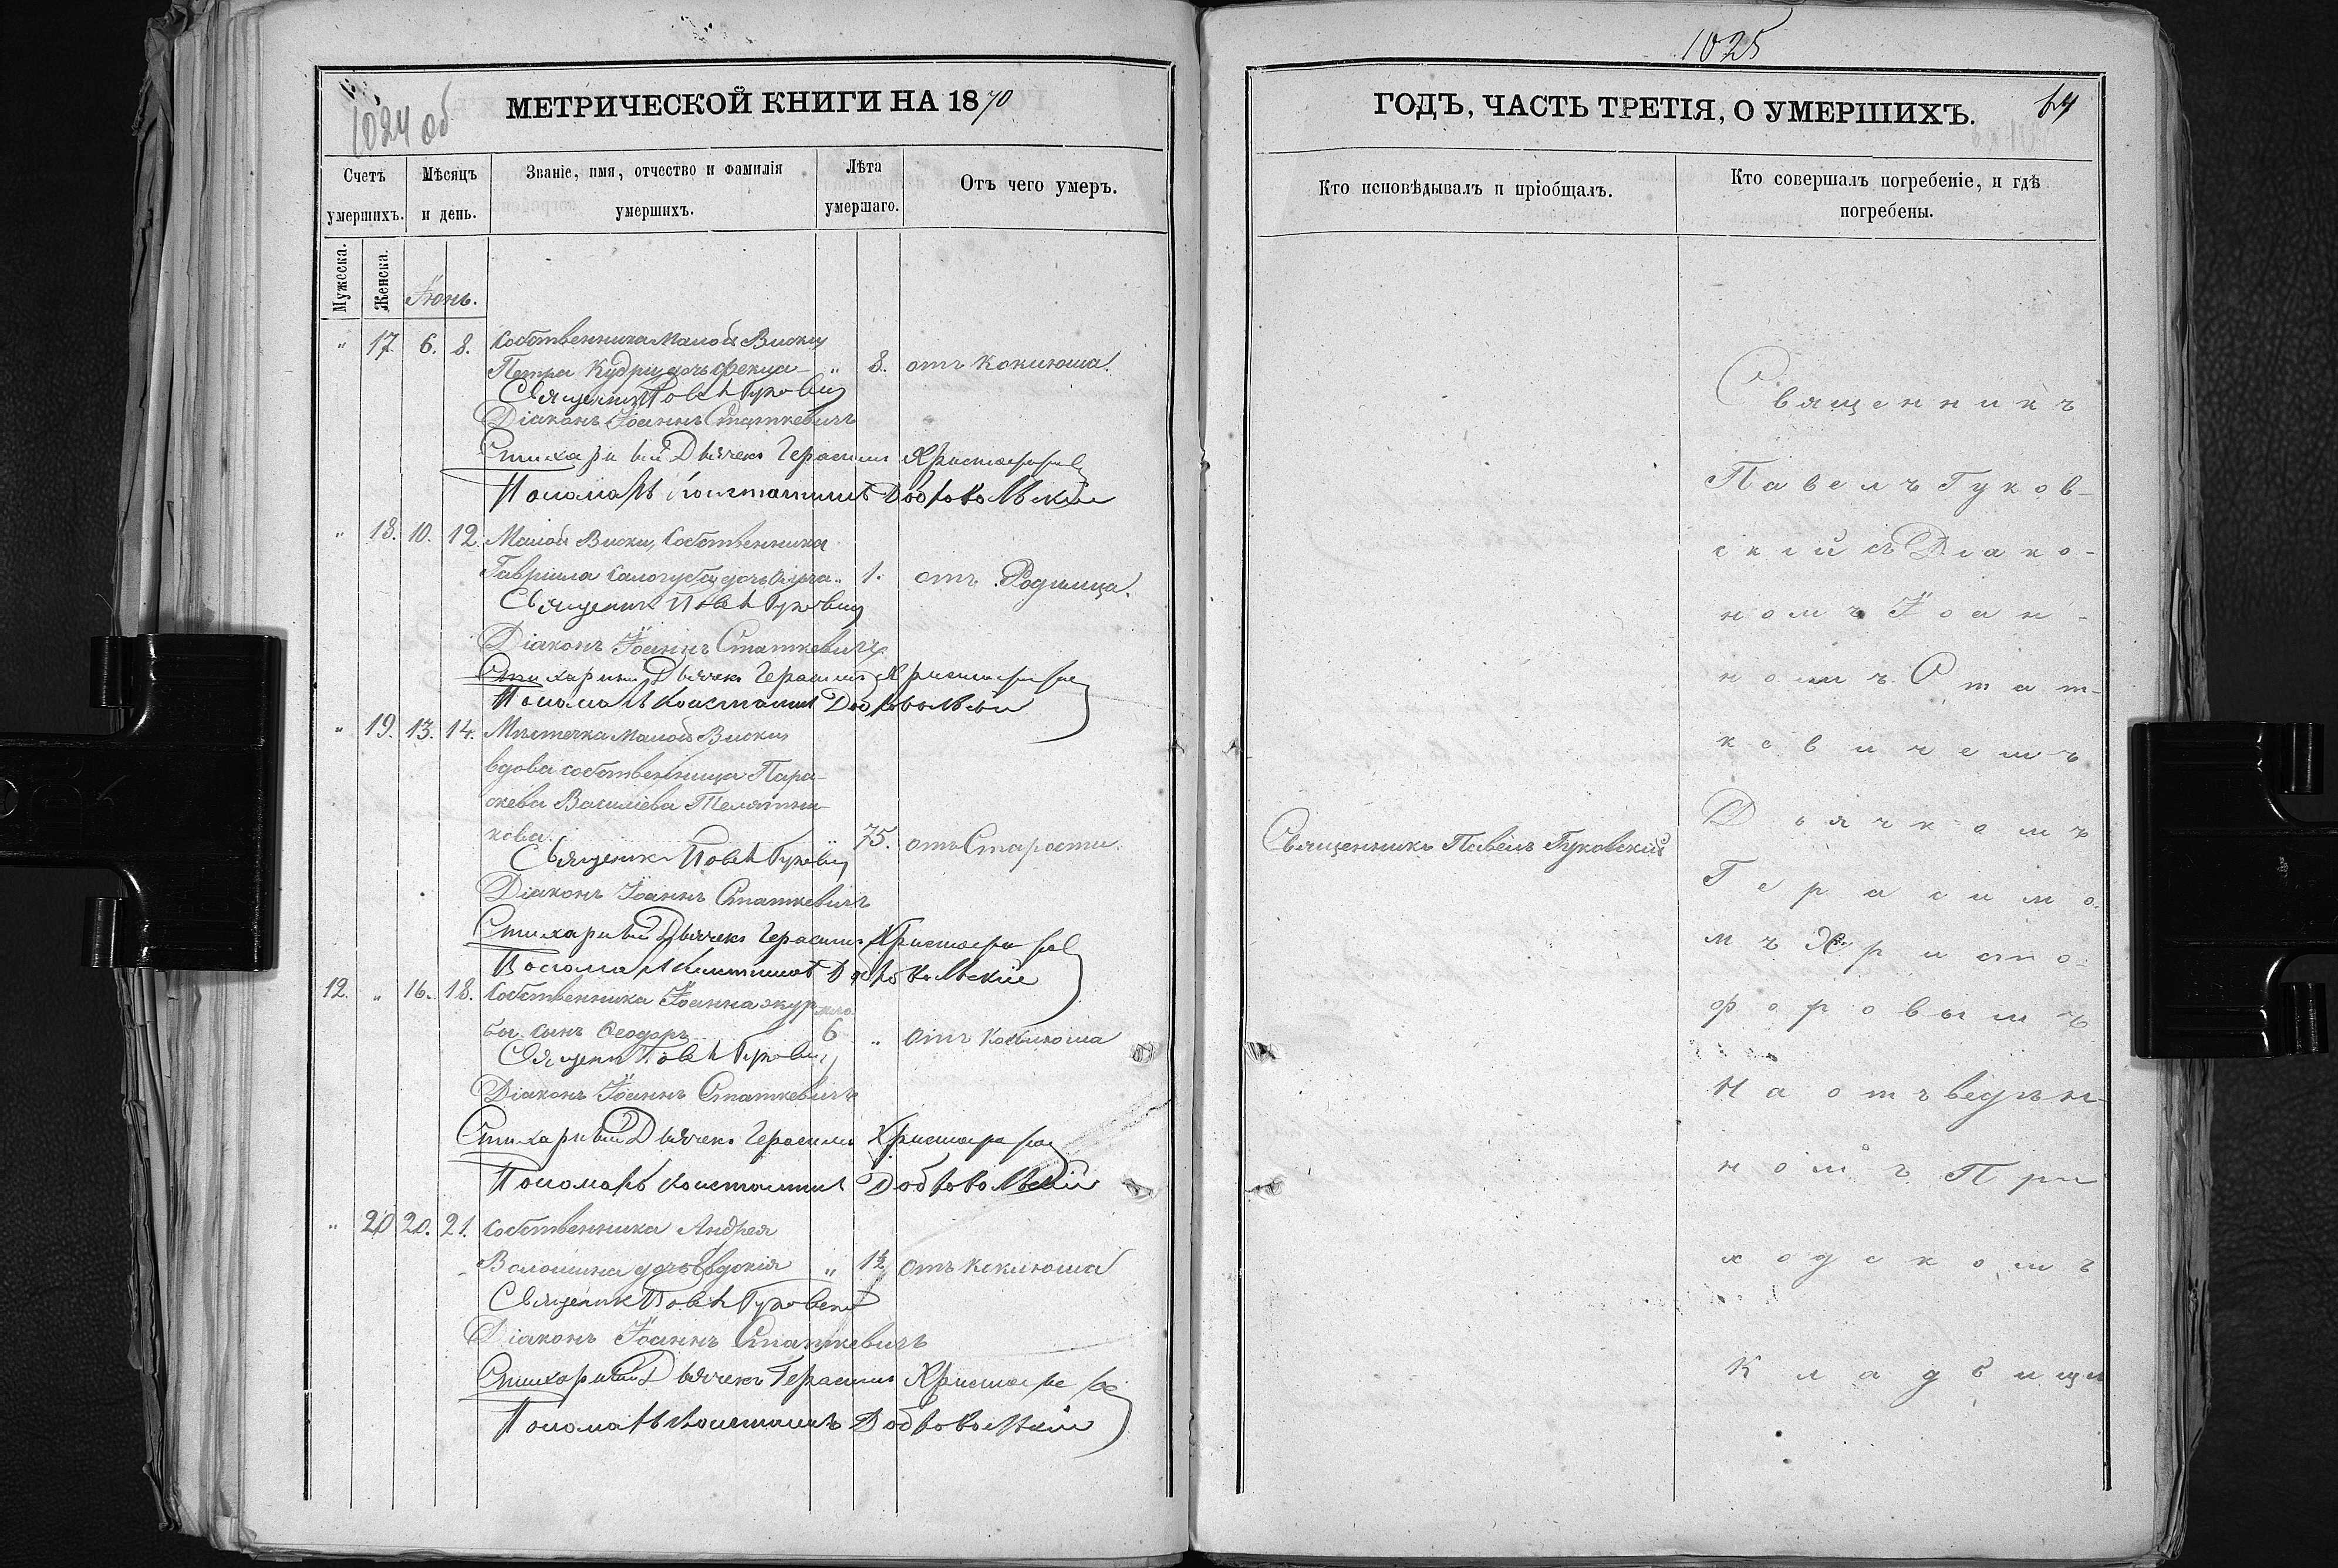 1024 об
МЕТРИЧЕСКОЙ КНИГИ НА 1870
Счетъ умершихъ.
Мѣсяцъ и день.
Званіе, имя, отчество и фамилія умершихъ.
Лѣта умершаго.
Отъ чего умеръ.
Мужеска.
Женска.
Іюнь.
" 17. 6. 8. Собственника Малой Виски
Петра Кудри дочь Фекла " 8. отъ Коклюша.
Діаконъ Іоаннъ Статкевичъ
Стихарный Дьячекъ Герасимъ Христофоровъ
Пономарь Константинъ Добровольскій
" 18. 10. 12. Малой Виски, Собственника
Гавріила дочь " 1. отъ Родимца.
Діаконъ Іоаннъ Статкевичъ
Стихарный Дьячекъ Герасимъ Христофоровъ
Пономарь Константинъ Добровольскій
" 19. 13. 14. Мѣстечка Малой Виски
вдова собственница Пара-
скева Василіева Телятни-
кова. " 75. отъ Старости.
Діаконъ Іоаннъ Статкевичъ
Стихарный Дьячекъ Герасимъ Христофоровъ
Пономарь Константинъ Добровольскій
12. " 16. 18. Собственника Іоанна
сынъ Ѳеодоръ 6 " отъ Коклюша
Діаконъ Іоаннъ Статкевичъ
Стихарный Дьячекъ Герасимъ Христофоровъ
Пономарь Константинъ Добровольскій
" 20 20. 21. Собственника Андрея
Волошина дочь Евдокія " 1½ отъ Коклюша
Священникъ Павелъ Гуковскій
Діаконъ Іоаннъ Статкевичъ
Стихарный Дьячекъ Герасимъ Христофоровъ
Пономарь Константинъ Добровольскій
1025
ГОДЪ, ЧАСТЬ ТРЕТІЯ, О УМЕРШИХЪ.
Кто исповѣдывалъ и пріобщалъ.
Кто совершалъ погребеніе, и гдѣ погребены.
Священникъ Павелъ Гуковскій
Священникъ
Павелъ Гуков-
скій съ Діако-
номъ Іоан-
номъ Стат-
кевичемъ
Дьячкомъ
Герасимо-
мъ Христо-
форовымъ
На отъведен-
номъ При
ходскомъ
Кладбищѣ